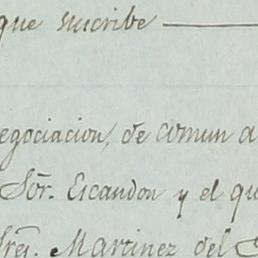 que suscribe
egociacion, de comun a
Sõr. Escandon y el qu
Sres. Martinez del